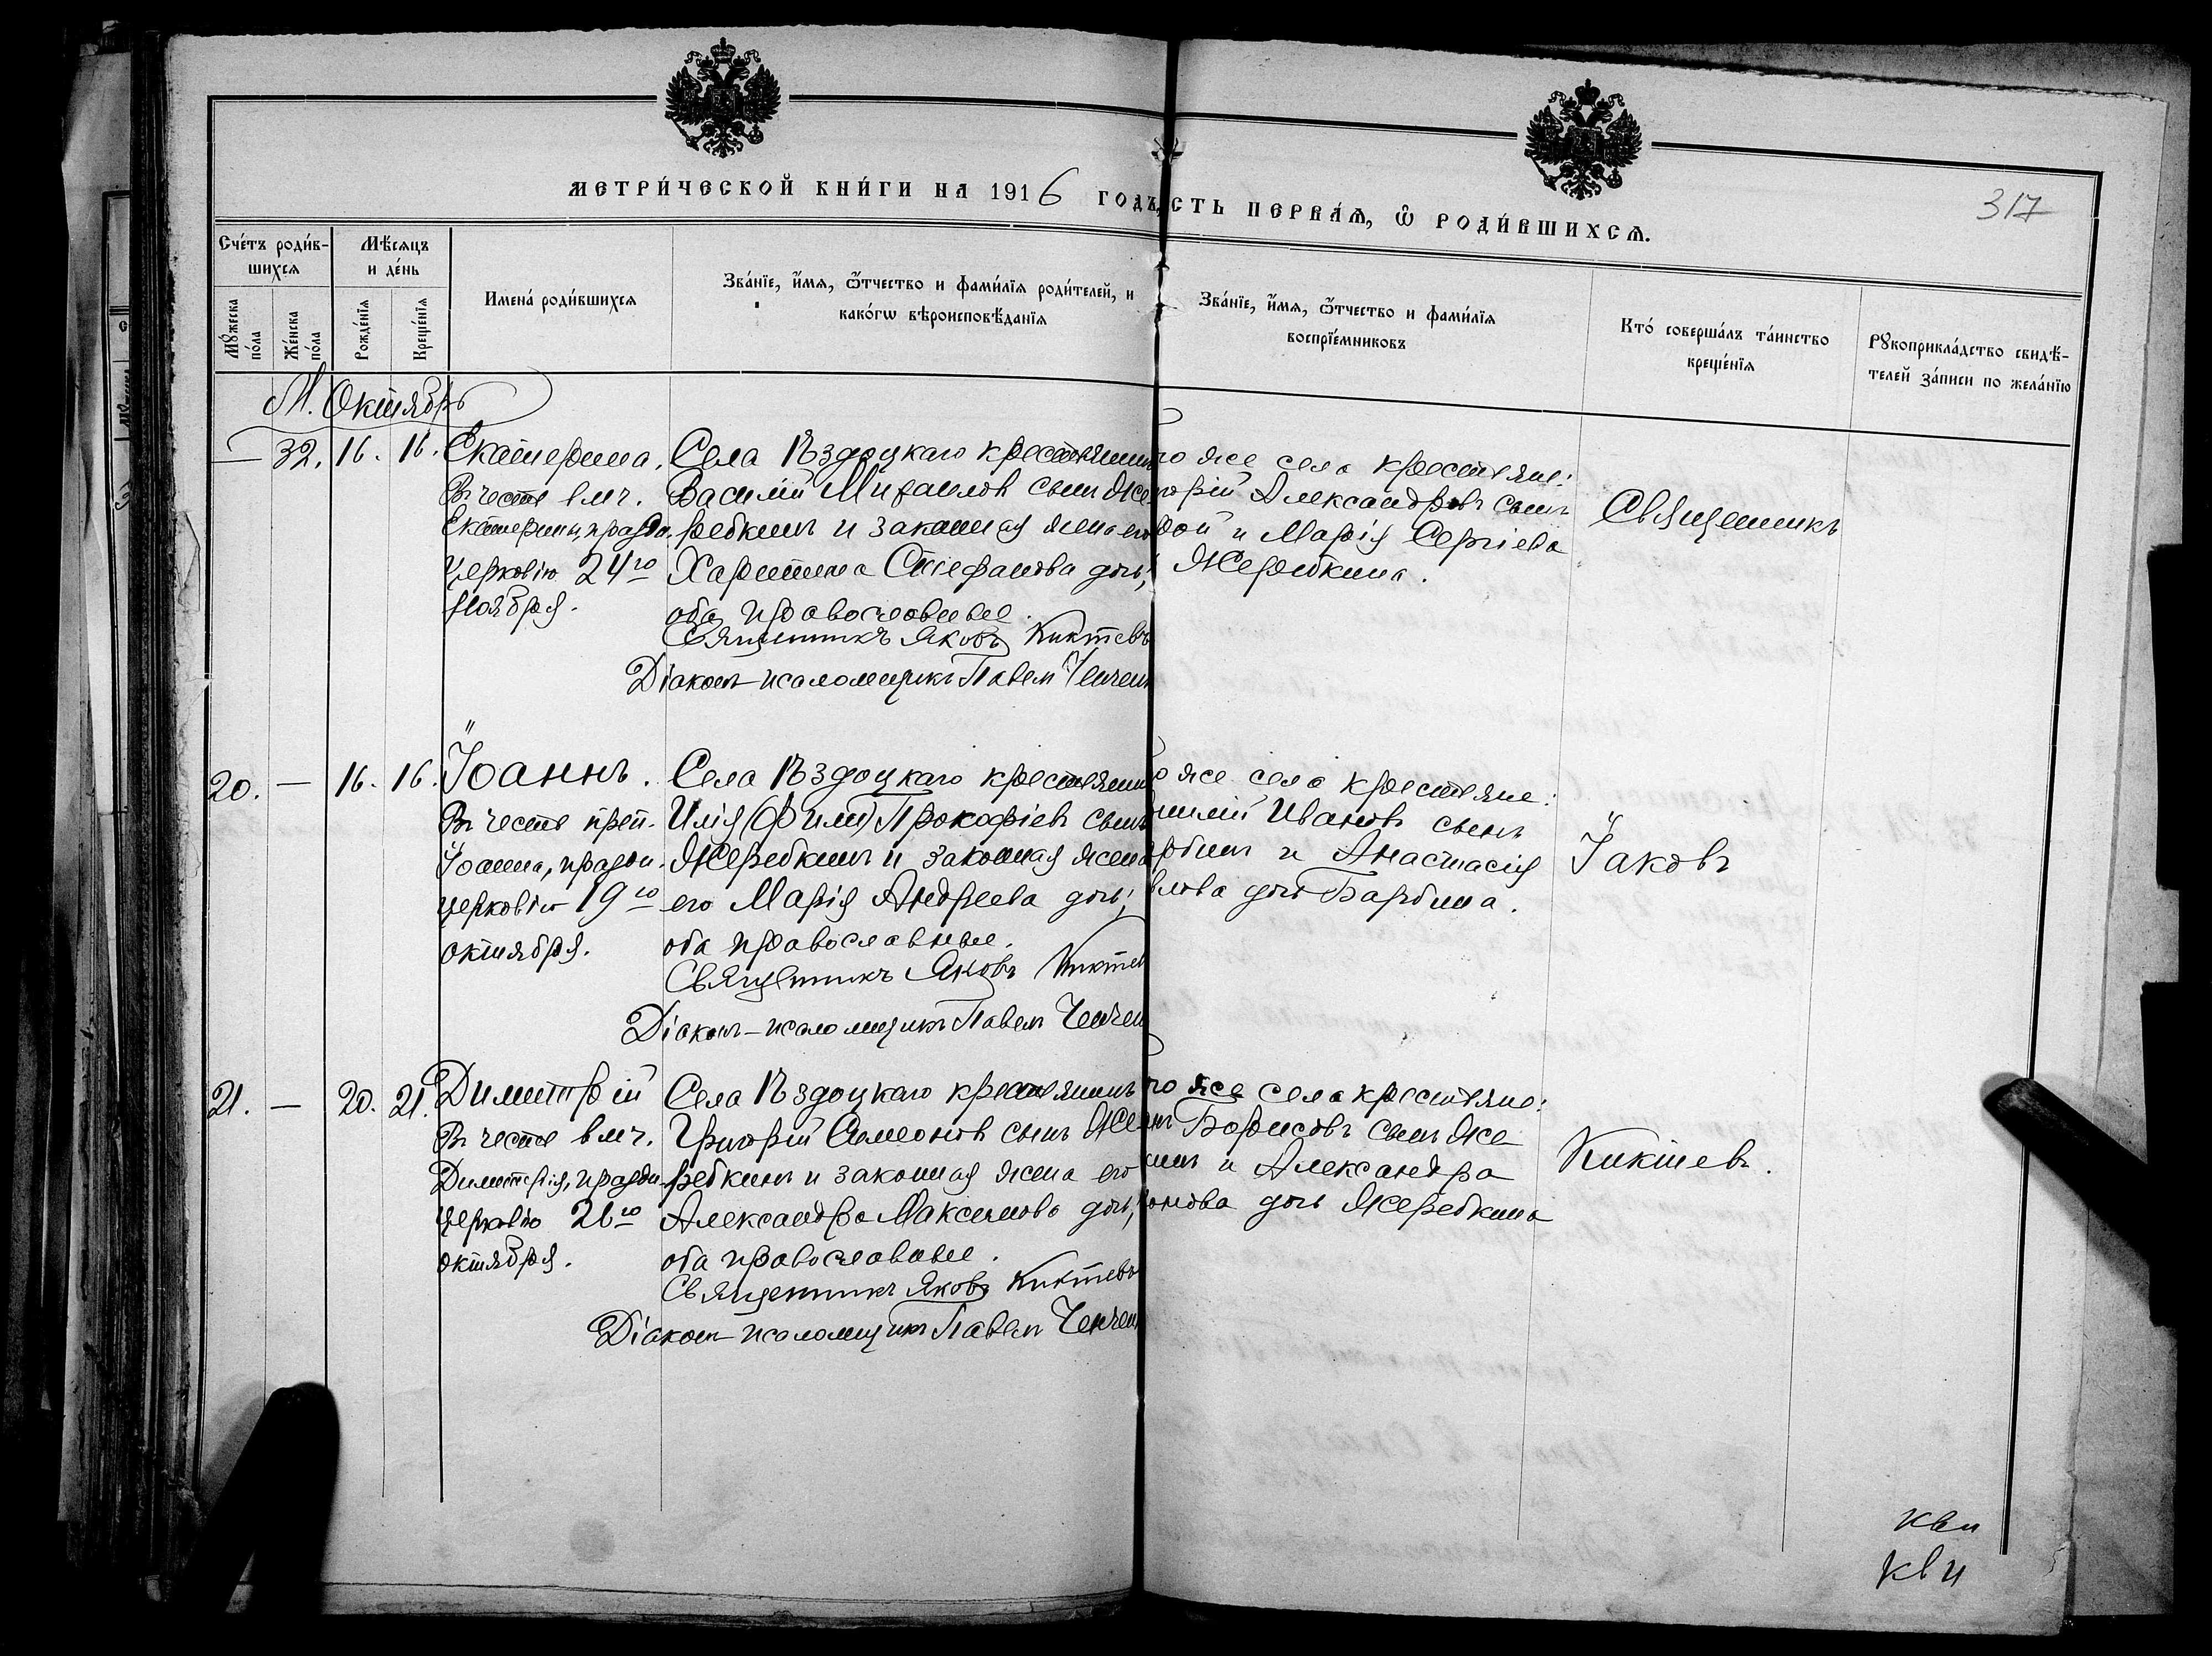 МЕТРИ́ЧЕСКОЙ КНИ́ГИ НА 1916 ГОДЪ,
СТЬ ПЕРВАѦ, Ѡ РОДИ́ВШИХСѦ.
317
Сче́тъ роди́в-
шихсѧ
Мѣ́сяцъ
и де́нь
Имена́ роди́вшихсѧ
Зва́нїе, и́мѧ, ѻ҆́тчество и фами́лїѧ роди́телей, и
како́гѡ вѣроисповѣ́данїѧ
Зва́нїе, и́мѧ, ѻ҆́тчество и фами́лїѧ
воспрїе́мниковъ
Кто́ соверша́лъ та́инство
креще́нїѧ
Рꙋкоприкла́дство свидѣ́-
телей за́писи по жела́нїю
Мꙋ́жеска
по́ла
Же́нска
по́ла
Рожде́нїѧ
Креще́нїѧ
М. Октябрь
— 32. 16. 16. Екатерина.
Въ честь вмч.
Екатерины, праздн.
церковію 24го
Ноября.
Села Ѣздоцкаго крестьянин
Василій Михаилов сынъ Же
ребкинъ и законная жена его
Харитина Стефанова дочь,
оба православные.
Священникъ Яковъ Киктевъ
Діаконъ-псаломщикъ Павелъ
го же села крестьяне:
горій Александровъ сынъ
и Марія Сергіева
Жеребкина.
Священникъ
20. — 16. 16. Іоаннъ.
Въ честь преп.
Іоанна, праздн.
церковію 19го
октября.
Села Ѣздоцкаго крестьянин
Илія (Филип) Прокофіев сынъ
Жеребкинъ и законная жена
его Марія Андреева дочь,
оба православные.
Священникъ Яковъ Киктев
Діаконъ-псаломщикъ Павелъ
о же села крестьяне:
Ивановъ сынъ
рбинъ и Анастасія
влова дочь Барбина.
Іаковъ
21. — 20. 21. Димитрій
Въ честь вмч.
Димитрія, праздн.
церковію 26го
октября.
Села Ѣздоцкаго крестьянинъ
Григорій Симеонов сынъ Же
ребкинъ и законная жена его
Александра Максимова дочь,
оба православные.
Священникъ Яковъ Киктевъ
Діаконъ-псаломщикъ Павелъ
го же села крестьяне:
Борисовъ сынъ Же
кинъ и Александра
онова дочь Жеребкина
Киктевъ.